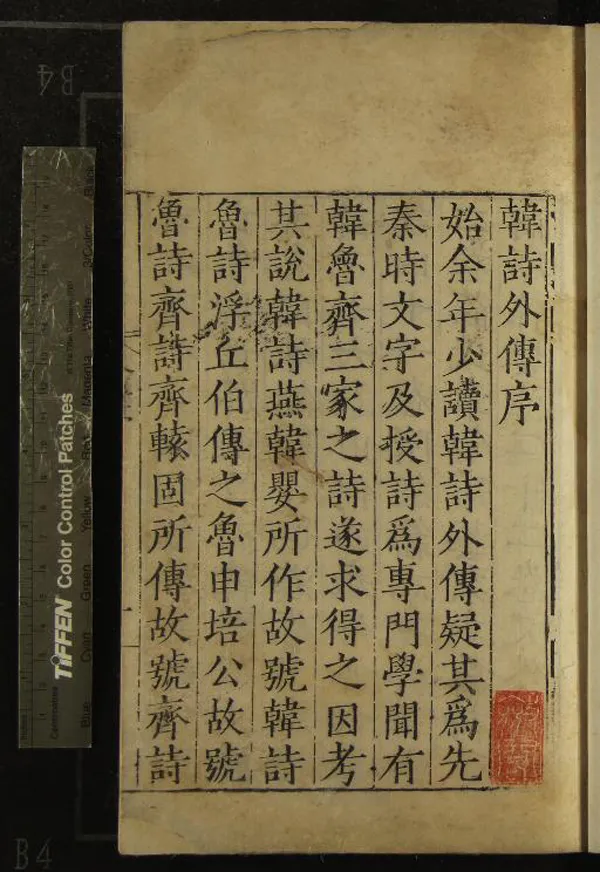 韓詩外傳序
始余年少讀韓詩外傳疑其爲先
秦時文字及授詩爲專門學聞有
韓魯齊三家之詩遂求得之因考
其說韓詩燕韓嬰所作故號韓詩
魯詩浮丘伯傳之魯申培公故號
魯詩齊詩齊轅固所傳故號齊詩
TIFFEN Color Control Patches
Blue
Cyan
Green
Yellow
Red
Magenta
White
3/Color
Black
B4
B4